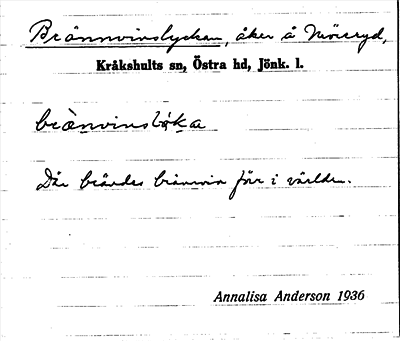 Brännvinslyckan, åker å Mörteryd,
Kråkshults sn, Östra hd, Jönk. l.
brä̀nvinsłø̀ka
Där brändes brännvin förr i världen.
Annalisa Anderson 1936